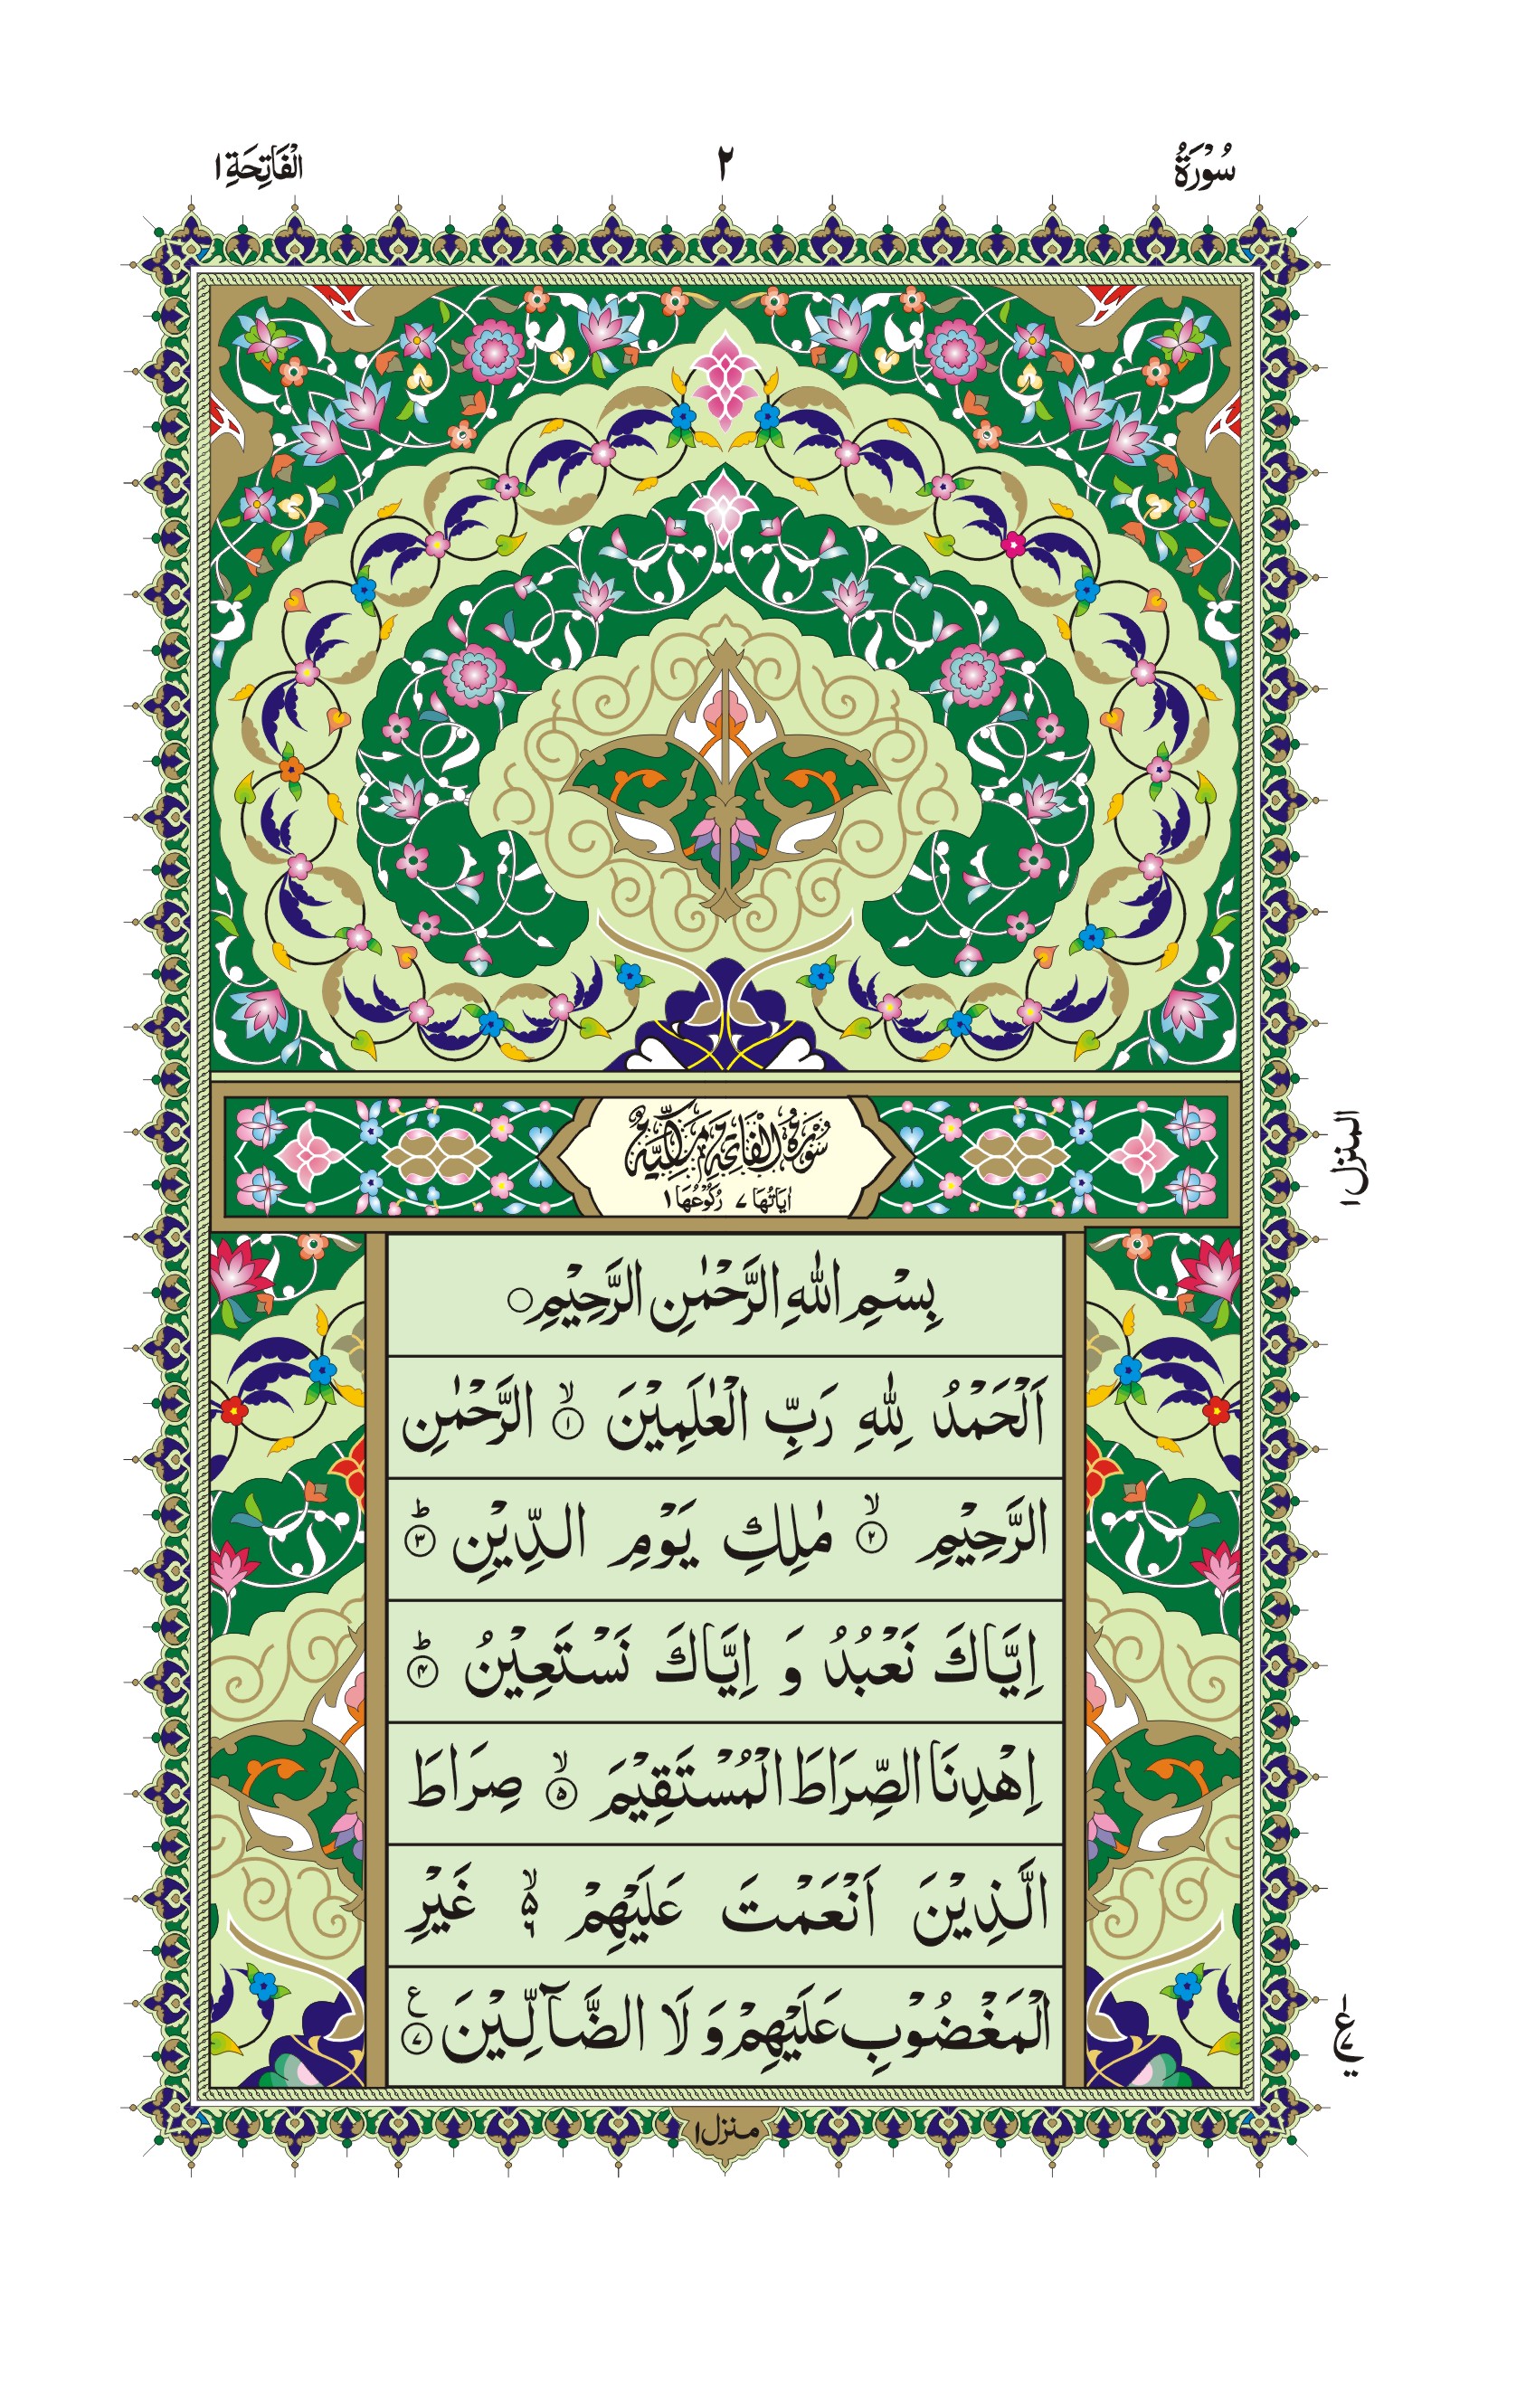 سُوْرَةُ ٢ الْفَاتِحَةِ ١
سُوْرَةُ الْفَاتِحَةِ مَكِّيَّةٌ
اٰيَاتُهَا ٧ رُكُوْعُهَا ١
بِسْمِ اللّٰهِ الرَّحْمٰنِ الرَّحِيْمِ ○
اَلْحَمْدُ لِلّٰهِ رَبِّ الْعٰلَمِيْنَ ۙ ١ الرَّحْمٰنِ
الرَّحِيْمِ ۙ ٢ مٰلِكِ يَوْمِ الدِّيْنِ ؕ ٣
اِيَّاكَ نَعْبُدُ وَ اِيَّاكَ نَسْتَعِيْنُ ؕ ۴
اِهْدِنَا الصِّرَاطَ الْمُسْتَقِيْمَ ۙ ۵ صِرَاطَ
الَّذِيْنَ اَنْعَمْتَ عَلَيْهِمْ ۙ ۵ ٦ غَيْرِ
الْمَغْضُوْبِ عَلَيْهِمْ وَ لَا الضَّآلِّيْنَ ع ٧
المنزل ١
ع ١ ٧
منزل ١